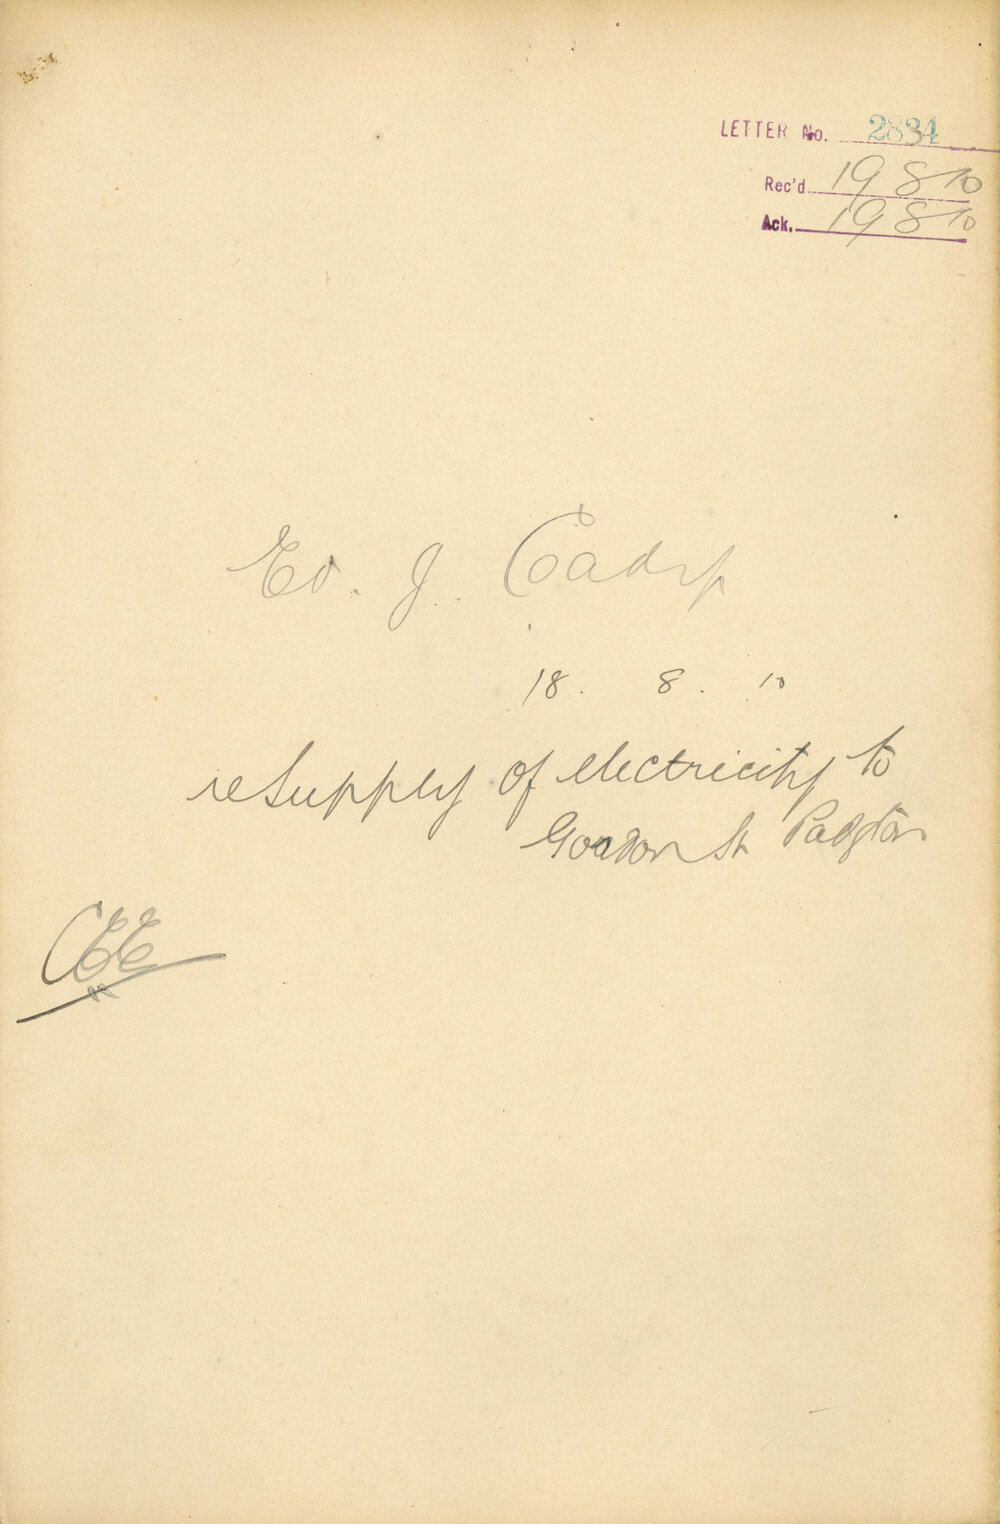 LETTER No. 2834
Rec'd 19 8 10
Ack. 19 8 10
Ed. J.
18. 8. 10
re Supply of electricity to
Gordon St Padgton
CEE